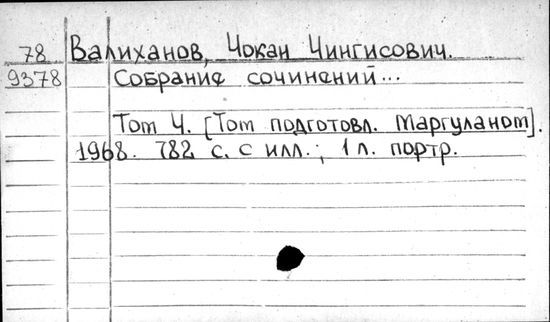 78 Валиханов, Чокан Чингисович.
9378 Собрание сочинений...
Том 4. [Том подготовл. Маргуланом].
1968. 782 с. с илл.; 1 л. портр.